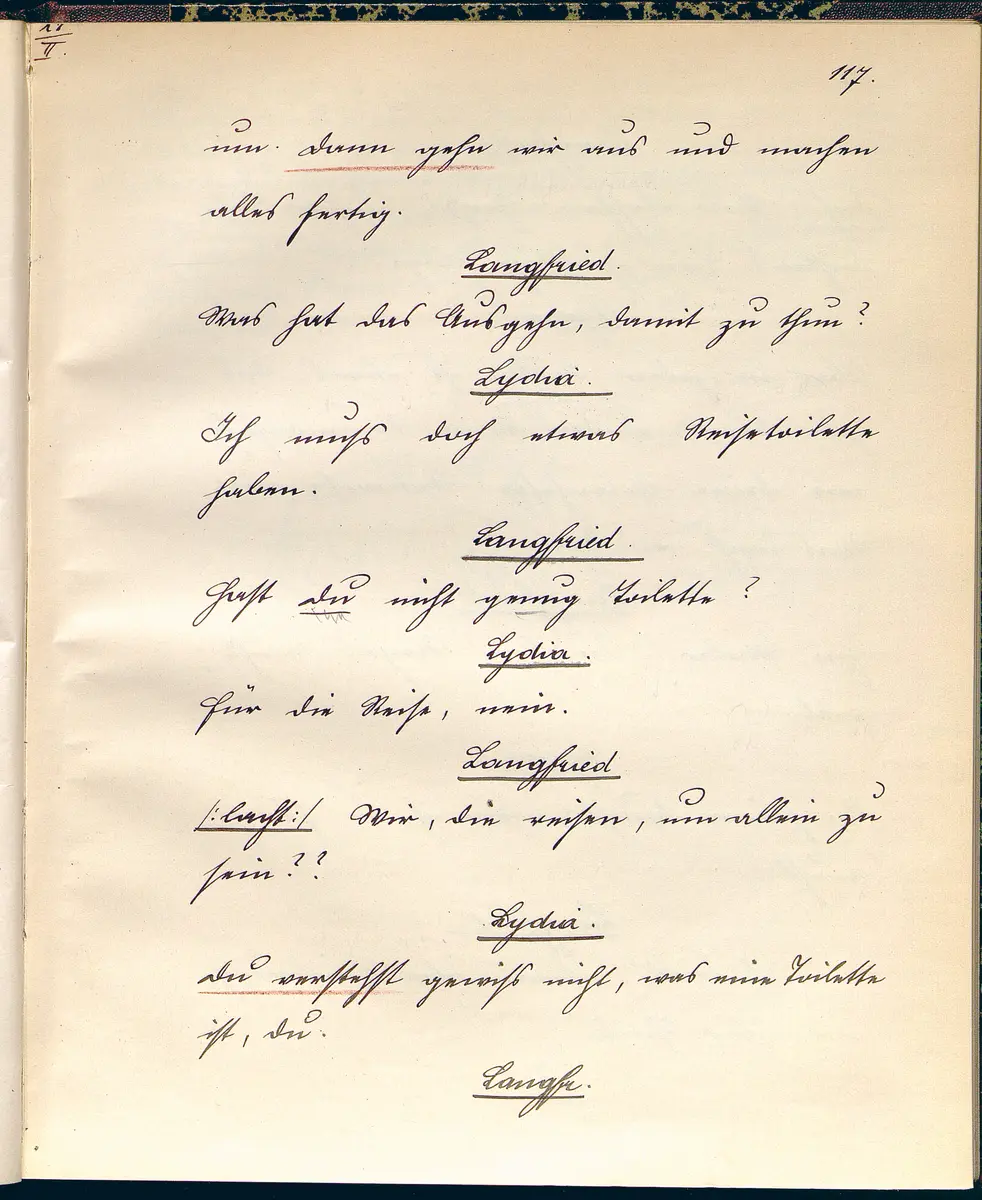 117.
um. Dann gehn wir aus und machen
alles fertig.
Langfried.
Was hat das Ausgehn, damit zu thun?
Lydia.
Ich muss doch etwas Reisetoilette
haben.
Langfried.
Hast du nicht genug Toilette?
Lydia.
Für die Reise, nein.
Langfried
/:lacht:/ Wir, die reisen, um allein zu
sein??
Lydia.
Du verstehst gewiss nicht, was eine Toilette
ist, du.
Langfr.